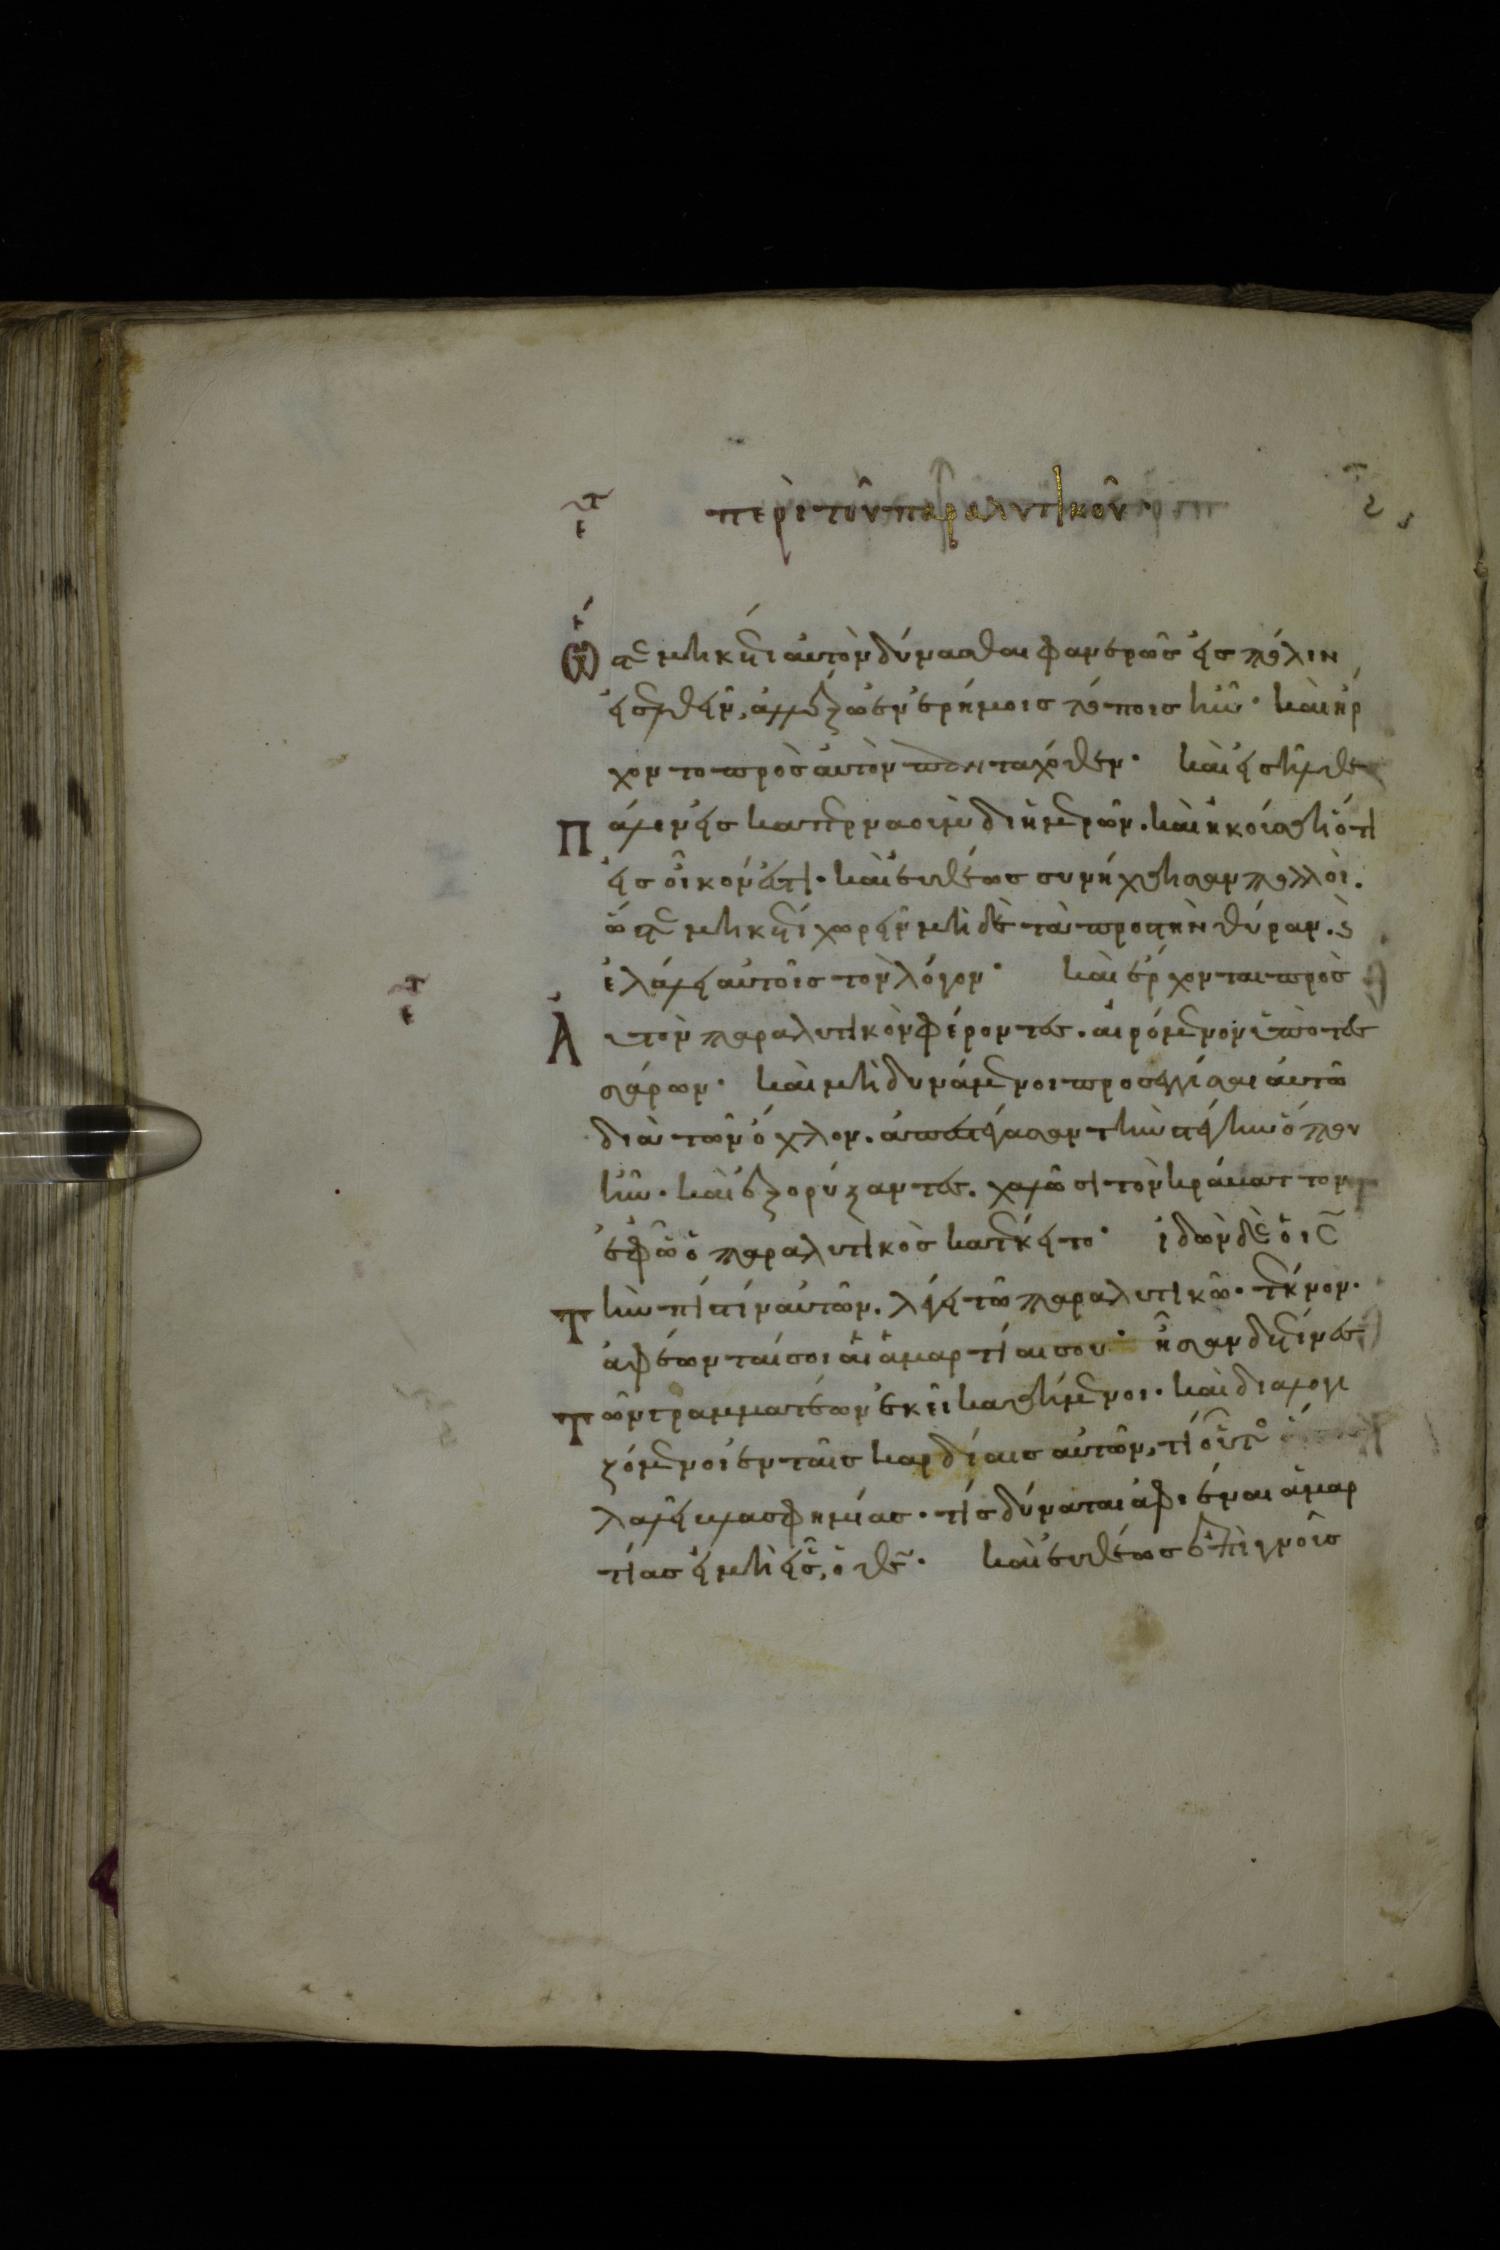 περὶ τοῦ παραλυτικοῦ·
Ὥστε μηκέτι αὐτὸν δύνασθαι φανερῶς εἰς πόλιν
εἰσελθεῖν, ἀλλ' ἔξω ἐν ἐρήμοις τόποις ἦν· καὶ ἤρ
χοντο πρὸς αὐτὸν πανταχόθεν· καὶ εἰσῆλθε
Πάλιν εἰς καπερναοὺμ δι' ἡμερῶν. καὶ ἠκούσθη ὅτι
εἰς οἶκόν ἐστι. καὶ εὐθέως συνήχθησαν πολλοὶ.
ὥστε μηκέτι χωρεῖν μηδὲ τὰ πρὸς τὴν θύραν. καὶ
ἐλάλει αὐτοῖς τὸν λόγον· καὶ ἔρχονται πρὸς
Αὐτὸν παραλυτικὸν φέροντες. αἰρόμενον ὑπὸ τεσ
σάρων· καὶ μὴ δυνάμενοι προσεγγίσαι αὐτῶ
διὰ τὸν ὄχλον. ἀπεστέγασαν τὴν στέγην ὅπου
ἦν. καὶ ἐξορύξαντες. χαλῶσι τὸν κράβαττον
ἐφ' ὧ ὁ παραλυτικὸς κατέκειτο· ἰδὼν δὲ ὁ ις
Τὴν πίστιν αὐτῶν. λέγει τῶ παραλυτικῶ. τέκνον.
ἀφέωνταί σοι αἱ ἁμαρτίαι σου· ἦσαν δέ τινες
Τῶν γραμματέων ἐκεῖ καθήμενοι. καὶ διαλογι
ζόμενοι ἐν ταῖς καρδίαις αὐτῶν, τί οὗτος
λαλεῖ βλασφημίας. τίς δύναται ἀφιέναι ἁμαρ
τίας εἰ μὴ εἷς, ὁ θς. καὶ εὐθέως ἐπιγνοὺς